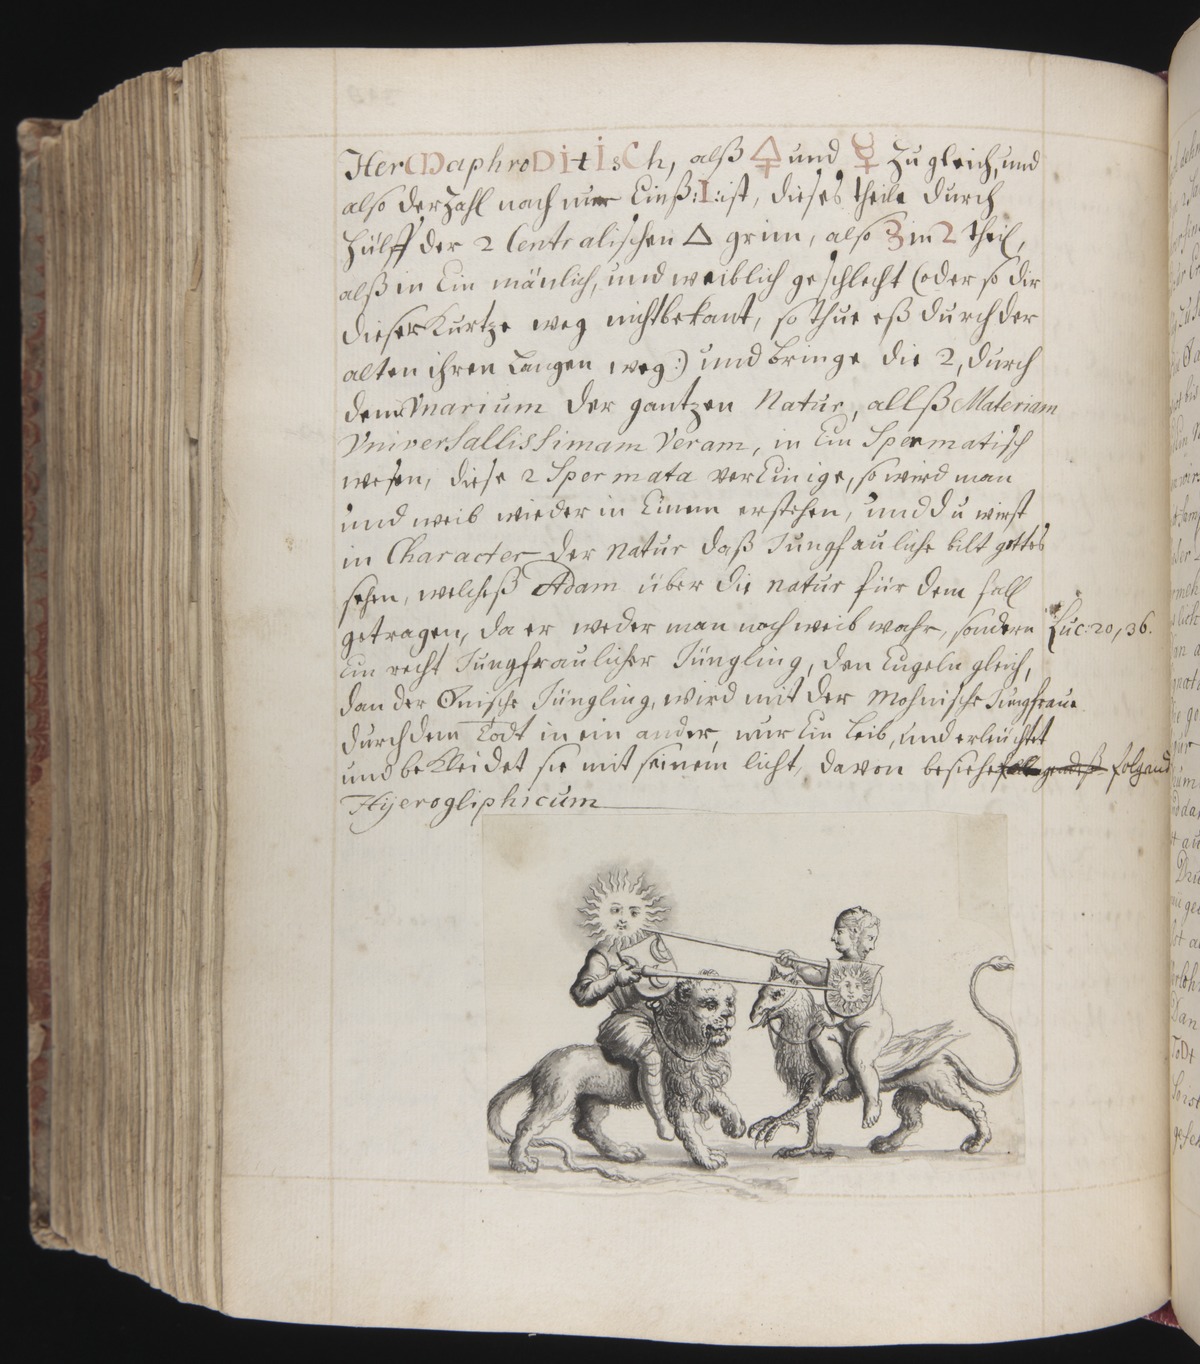 HerMaphroDitIsCh, alß 🜍 und ☿ zu gleich, und
also der Zahl nach nur Einß: I: ist, dieses theile durch
Hülff der 2 Centralischen △ grim, also 3 in 2 theil,
alß in Ein mänlich, und weiblich geschlecht (oder so dir
dieser Kurtze weg nicht bekant, so thue eß durch der
alten ihren Langen weg:) und bringe die 2, durch
dem Vnarium der gantzen Natur, allß Materiam
Vniversallissimam Veram, in Ein Spermatisch
wesen, diese 2 Spermata verEinige, so wird man
und weib wieder in Einem erstehen, und du wirst
in Character der Natur daß Jungfauliche bilt gottes
sehen, welcheß Adam über die natur für dem fall
getragen, da er weder man noch weib wahr, sondern
Luc: 20, 36.
Ein recht Jungfraulicher Jüngling, den Eugeln gleich,
dan der Jüngling, wird mit der Mohnische Jungfraue
durch dem Todt in ein ander, nur Ein Leib, und erleuchtet
und beKleidet sie mit seinem licht, davon besiehe folgend
Hijerogliphicum